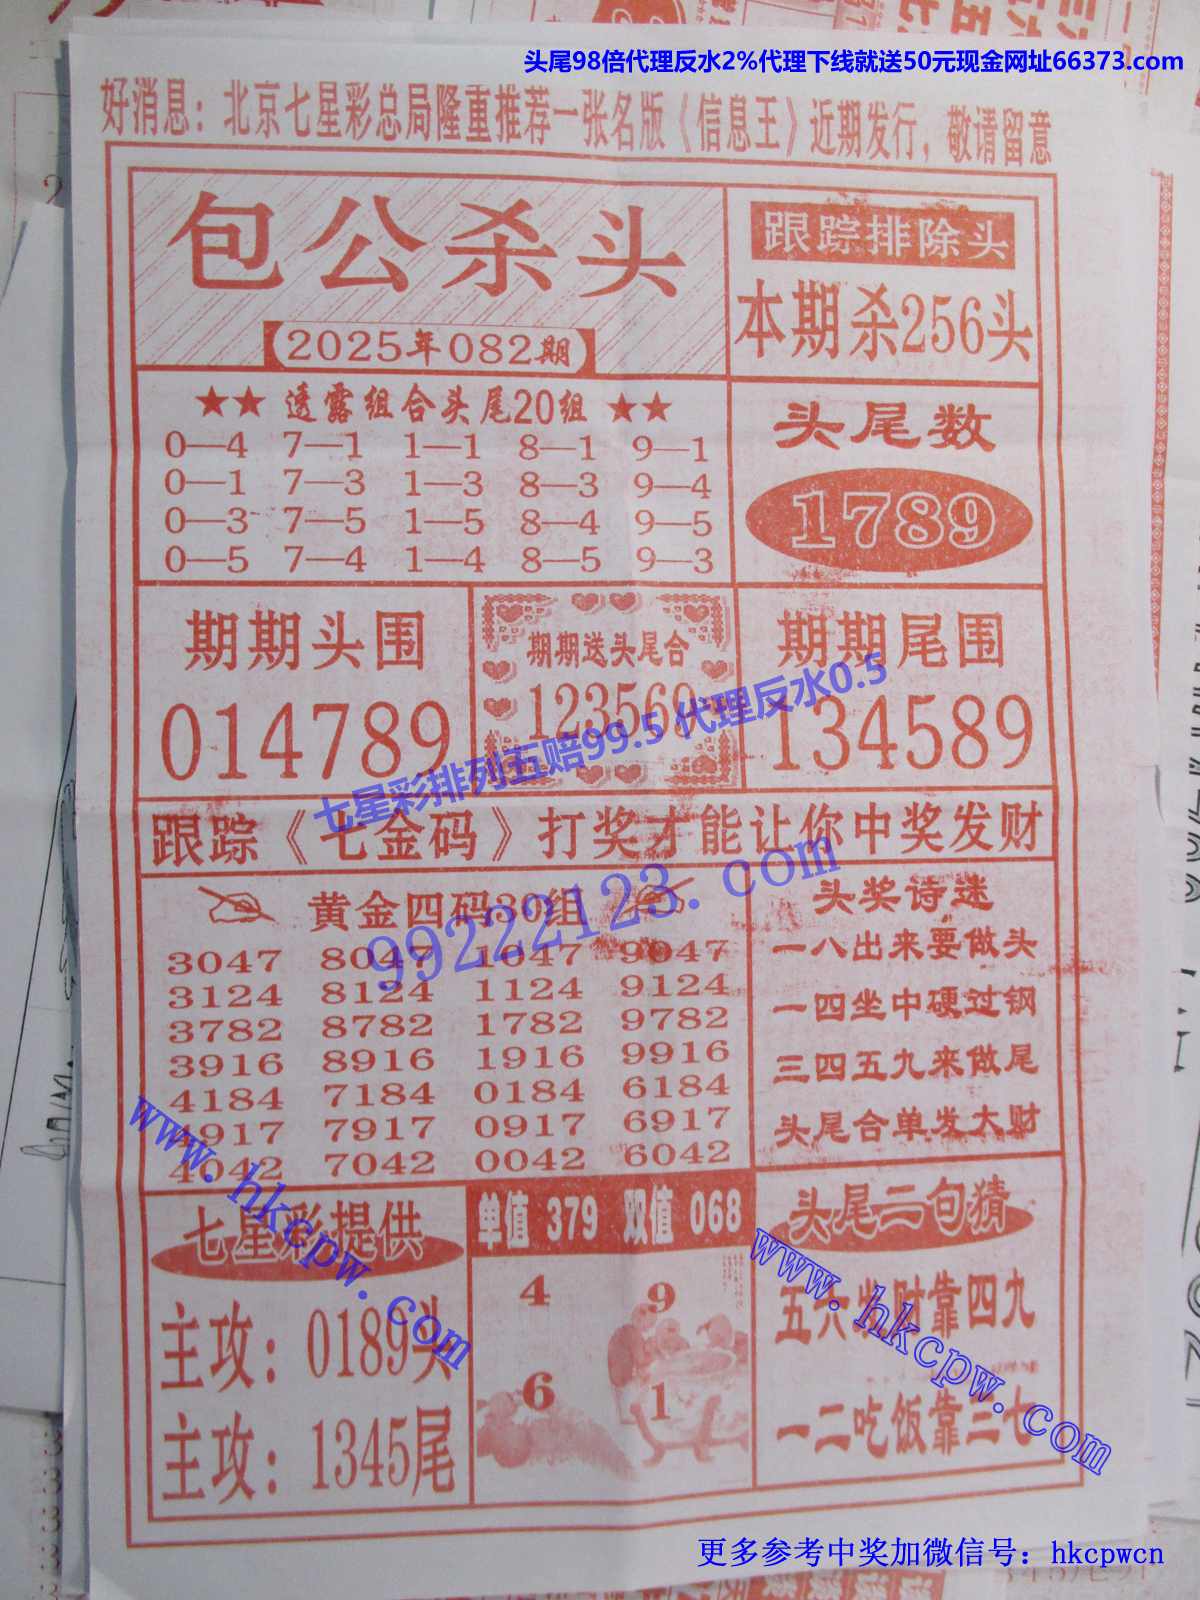 头尾98倍代理反水2%代理下线就送50元现金网址66373.com
好消息：北京七星彩总局隆重推荐一张名版《信息王》近期发行，敬请留意
包公杀头
【2025年082期】
跟踪排除头
本期杀256头
★★ 透露组合头尾20组 ★★
0—4 7—1 1—1 8—1 9—1
0—1 7—3 1—3 8—3 9—4
0—3 7—5 1—5 8—4 9—5
0—5 7—4 1—4 8—5 9—3
头尾数
1789
期期头围
014789
期期送头尾合
123569
期期尾围
134589
七星彩排列五赔99.5 代理反水0.5
跟踪《七金码》打奖才能让你中奖发财
99222123.com
黄金四码30组
3047 8047 1047 9047
3124 8124 1124 9124
3782 8782 1782 9782
3916 8916 1916 9916
4184 7184 0184 6184
4917 7917 0917 6917
4042 7042 0042 6042
头奖诗迷
一八出来要做头
一四坐中硬过钢
三四五九来做尾
头尾合单发大财
www.hkcpw.com
七星彩提供
主攻：0189头
主攻：1345尾
单值 379 双值 068
4 9
6 1
头尾二句猜
五六收财靠四九
一二吃饭靠三七
www.hkcpw.com
更多参考中奖加微信号：hkcpwcn